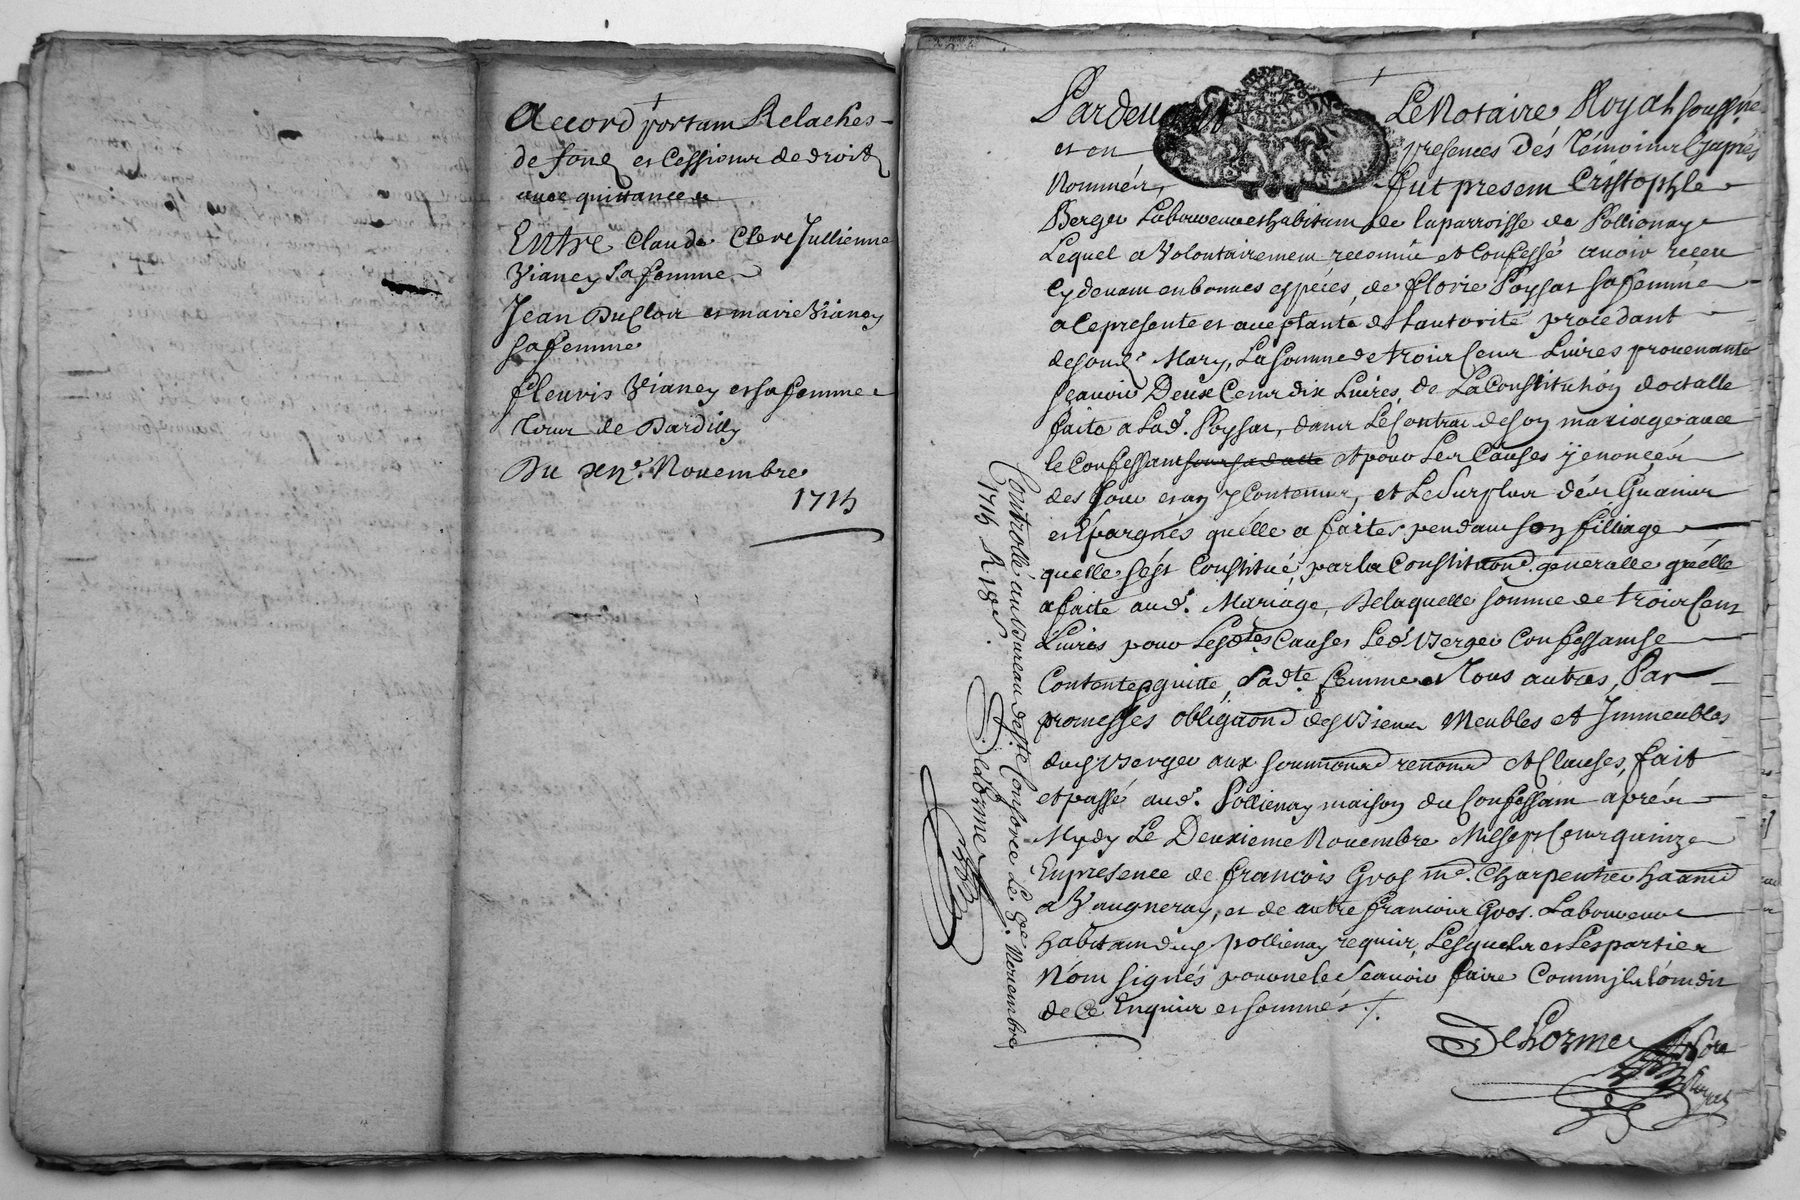 Accord portant Relaches
de fond et Cession de droits
avec quittance
Entre Claude Clere Jullienne
Vianey sa femme
Jean Du Cloir et marie Vianey
sa femme
fleuris Vianey et sa femme
Tous de Dardilly
Du Novembre
1715
Pardevant Le Notaire Royal soussigné
et en presences dés témoins Cyaprés
Nommés, fut present Cristophle
Berger Laboureur et habitant de la parroisse de Pollionay
Lequel a Volontairement reconnü et Confessé avoir receu
Cy devant en bonnes espéces, de florie Poyfat sa femme
a ce presente et aceptante de Lautorité procedant
de sond. Mary, La somme de trois Cent Livres provenante
scavoir Deux Cent dix Livres, de La Constitution doctalle
faite a Lad. Poysat, dans Le Contrat de son mariage avec
le Confessant et pour Les Causes y enoncées
des Jour et an y Contenus, et Le Surplus dés Guains
et Épargnés quélle a faites pendant son filliage
quelle sést Constitué, par la Constitution generalle quélle
a faite aud. Mariage, De laquelle somme de trois Cent
Livres pour Lesdtes Causes Led. Berger Confessant se
Contente, quitte Sadte femme et Tous autres, Par
promesses obligaons des Biens Meubles et Immeubles
dud Berger aux soumissions renons et Clauses, fait
et passé aud. Pollienay maison du Confessant aprés
Mydy Le Deuxieme Novembre Mil sept Cent quinze
En presence de francois Gros md. Charpentier
a Vaugneray, et de autre francois Gros Laboureur
habitant dud pollienay requis, Lesquels et Les parties
N'ont signés pour ne le scavoir faire Comm'ils l'ont dit
de Ce Enquis et sommés
Delorme
Controllé au Bureau de Ste Consorce Le 9e Novembre
1715
Delorme